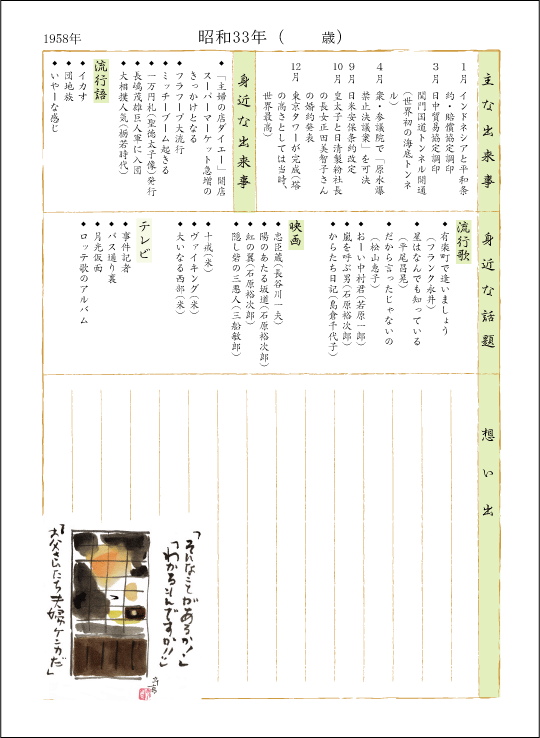 1958年
昭和33年（　　歳）
主な出来事
1月 インドネシアと平和条
約・賠償協定調印
3月 日中貿易協定調印
関門国道トンネル開通
（世界初の海底トンネ
ル）
4月 衆・参議院で「原水爆
禁止決議案」を可決
9月 日米安保条約改定
10月 皇太子と日清製粉社長
の長女正田美智子さん
の婚約発表
12月 東京タワーが完成（塔
の高さとしては当時、
世界最高）
身近な出来事
●「主婦の店ダイエー」開店
スーパーマーケット急増の
きっかけとなる
●フラフープ大流行
●ミッチーブーム起きる
●一万円札（聖徳太子像）発行
●長嶋茂雄巨人軍に入団
●大相撲人気（栃若時代）
流行語
●イカす
●団地族
●いやーな感じ
身近な話題
流行歌
●有楽町で逢いましょう
（フランク永井）
●星はなんでも知っている
（平尾昌晃）
●だから言ったじゃないの
（松山恵子）
●おーい中村君（若原一郎）
●嵐を呼ぶ男（石原裕次郎）
●からたち日記（島倉千代子）
映画
●忠臣蔵（長谷川一夫）
●陽のあたる坂道（石原裕次郎）
●紅の翼（石原裕次郎）
●隠し砦の三悪人（三船敏郎）
●十戒（米）
●ヴァイキング（米）
●大いなる西部（米）
テレビ
●事件記者
●バス通り裏
●月光仮面
●ロッテ歌のアルバム
想い出
「そんなことがあるか！」
「わかるもんですか!!」
『お父さんたち夫婦ケンカだ』